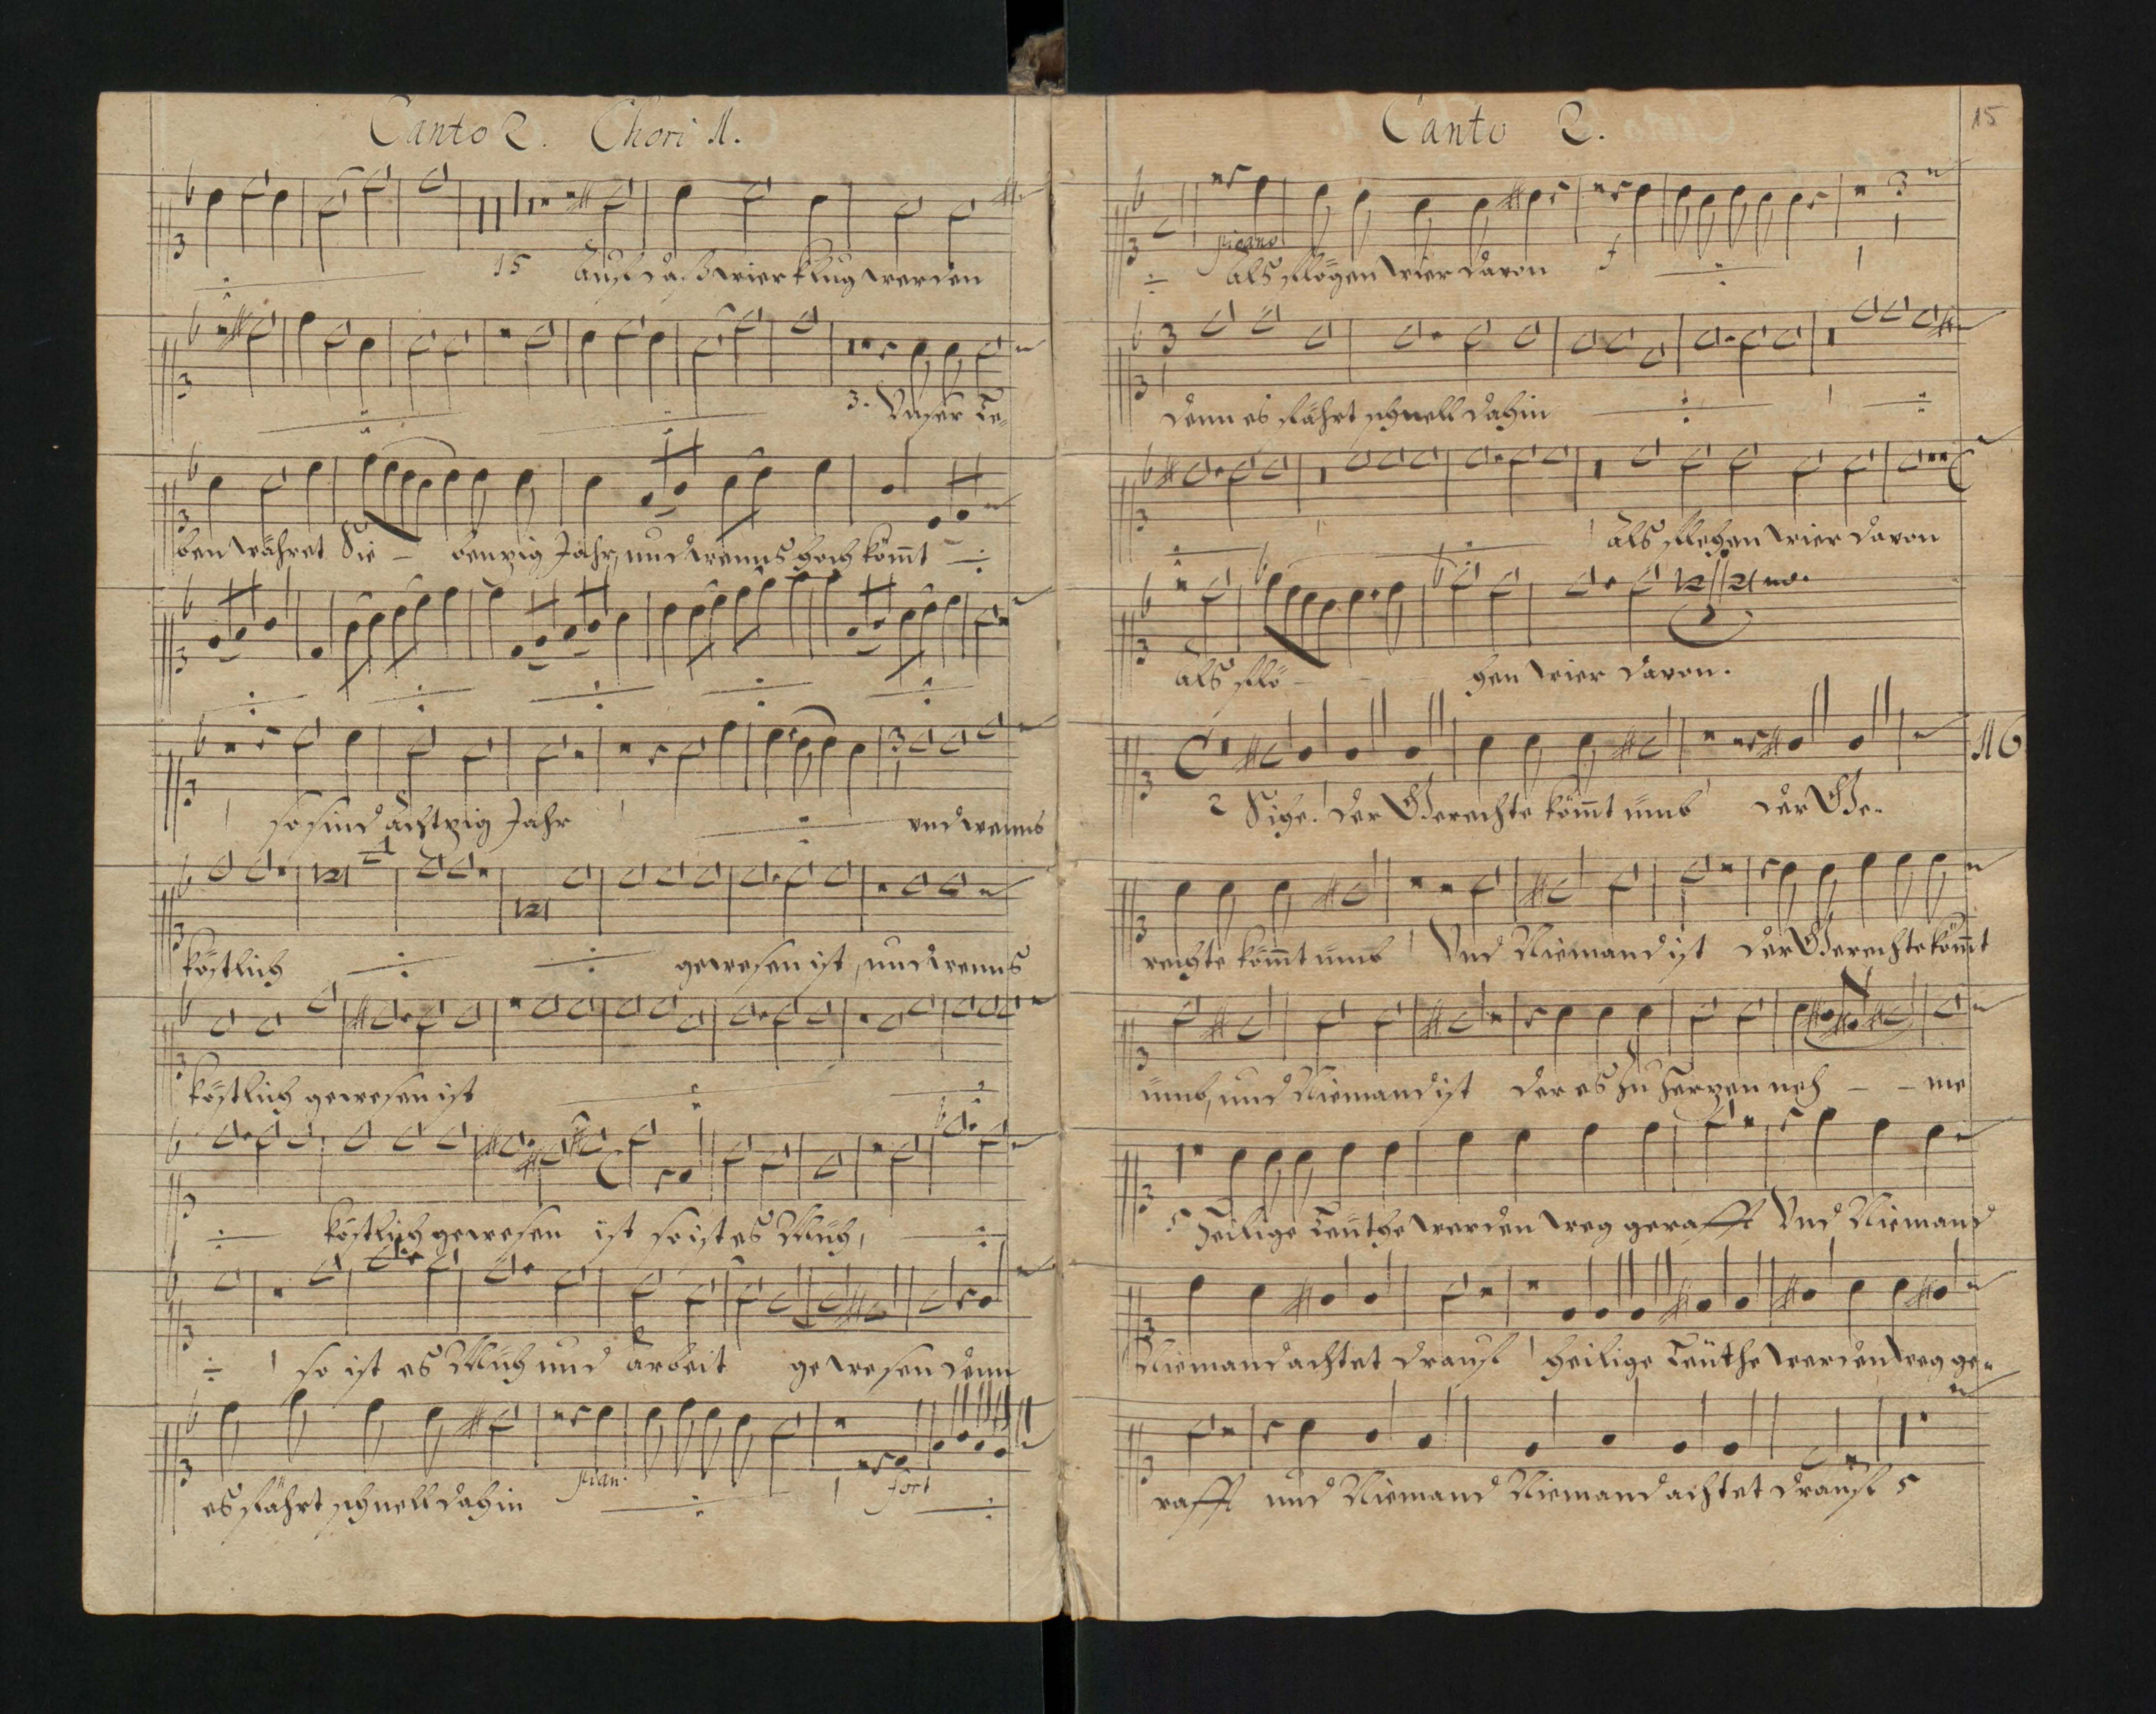 Canto 2. Chori 1.
15 Auf daß wier klug werden
3. Unser Le-
ben währet Sie - benzig Jahr, und wenns hoch kömt
so sind achtzig Jahr und wenns
köstlich gewesen ist, und wenns
köstlich gewesen ist
köstlich gewesen ist so ist es Müh,
so ist es Müh und arbeit gewesen denn
es fährt schnell dahin pian. fort
Canto 2. 15
piano als flögen wier davon f
denn es fährt schnell dahin
als flögen wier davon
als flö - gen wier davon.
16
2 Sihe. der Gerechte kömt umb der Ge-
rechte kömt umb Und Niemand ist der Gerechte kömt
umb, und Niemand ist der es zu Herzen neh - - me
5 Heilige Leuthe werden weg gerafft Und Niemand
Niemand achtet drauf heilige Leuthe werden weg ge-
rafft und Niemand Niemand achtet drauf 5